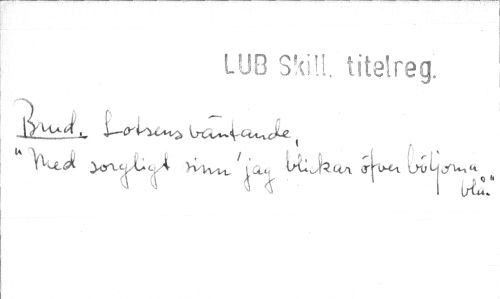 LUB Skill. titelreg.
Brud. Lotsens väntande,
"Med sorgligt sinn' jag blickar öfver böljorna
blå."